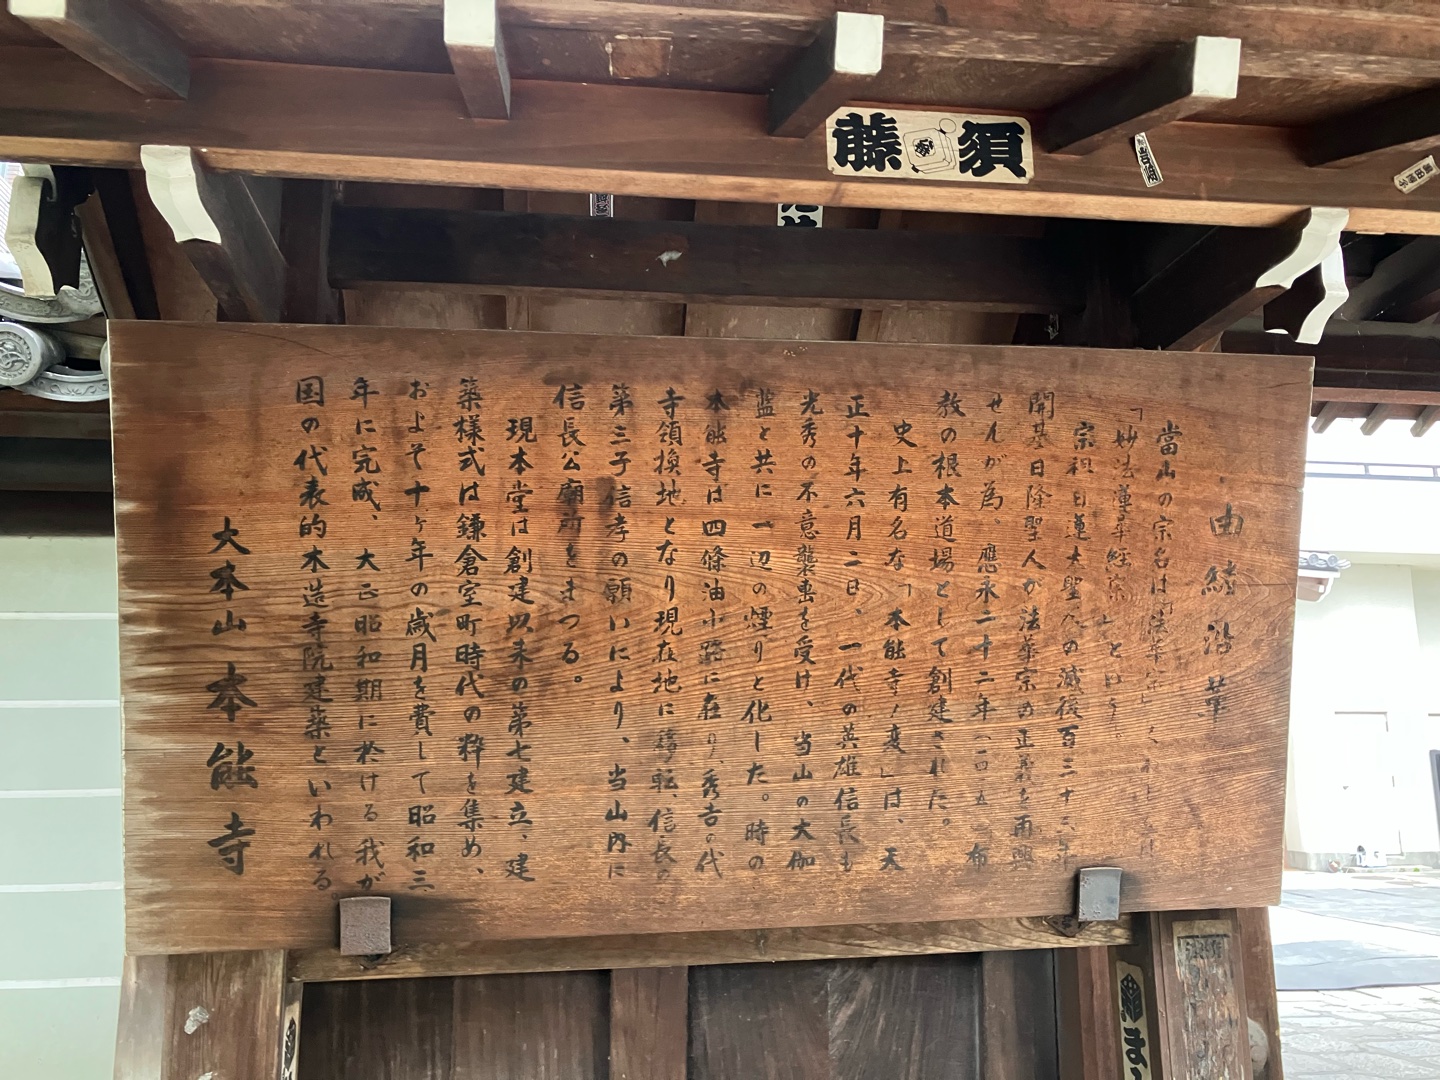 由緒沿革
當山の宗名は「法華宗」
「妙法蓮華経宗」とは
宗祖日蓮大聖人の滅後百三十三年
開基日隆聖人が法華宗の正義を再興
せんが為、應永二十二年(一四一五)布
教の根本道場として創建された。
史上有名な「本能寺ノ変」は、天
正十年六月二日、一代の英雄信長も
光秀の不意襲撃を受け、当山の大伽
藍と共に一辺の煙りと化した。時の
本能寺は四條油小路に在り、秀吉の代
寺領換地となり現在地に移転、信長の
第三子信孝の願いにより、当山内に
信長公廟所をまつる。
現本堂は創建以来の第七建立、建
築様式は鎌倉室町時代の粋を集め、
およそ十ヶ年の歳月を費して昭和三
年に完成、大正昭和期に於ける我が
国の代表的木造寺院建築といわれる。
大本山 本能寺
藤須